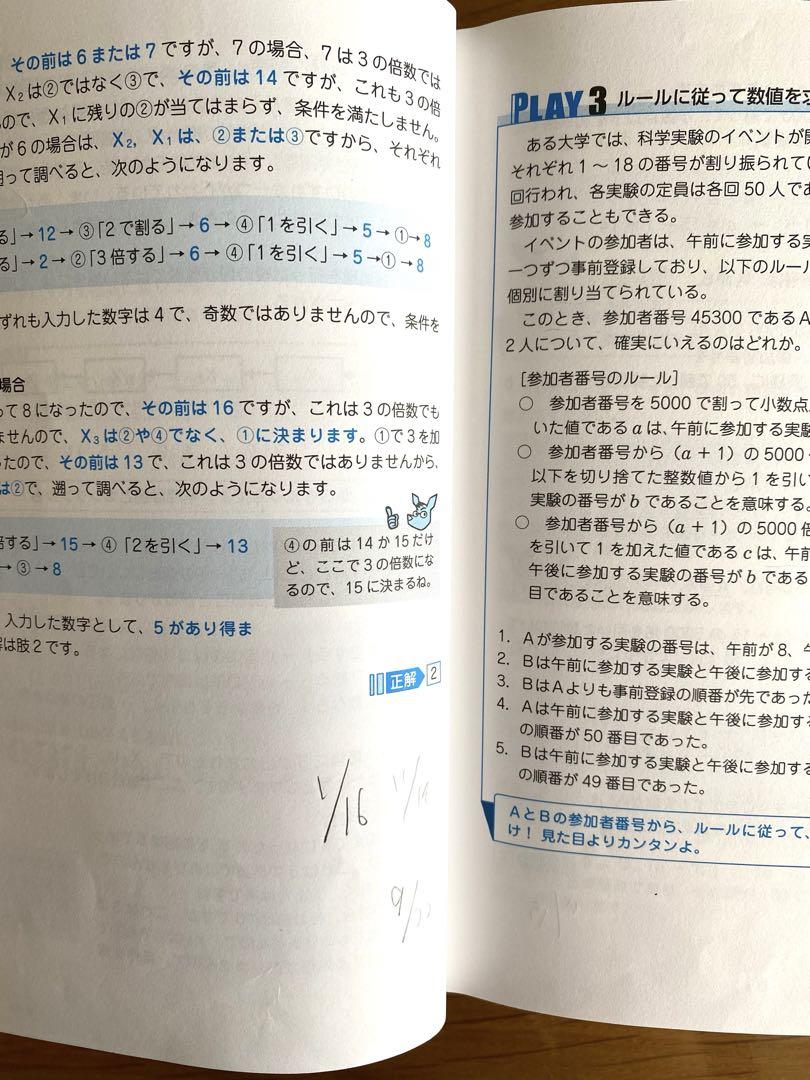 その前は6または7ですが、7の場合、7は3の倍数では
X₂は②ではなく③で、その前は14ですが、これも3の倍
ので、X₁に残りの②が当てはまらず、条件を満たしません。
が6の場合は、X₂，X₁は、②または③ですから、それぞれ
って調べると、次のようになります。
る」→12→③「2で割る」→6→④「1を引く」→5→①→8
る」→2→②「3倍する」→6→④「1を引く」→5→①→8
ずれも入力した数字は4で、奇数ではありませんので、条件を
場合
って8になったので、その前は16ですが、これは3の倍数でも
ませんので、X₃は②や④でなく、①に決まります。①で3を加
ったので、その前は13で、これは3の倍数ではありませんから、
は②で、遡って調べると、次のようになります。
倍する」→15→④「2を引く」→13
→③→8
④の前は14か15だけ
ど、ここで3の倍数にな
るので、15に決まるね。
入力した数字として、5があり得ま
は肢2です。
正解 2
1/16
PLAY 3 ルールに従って数値を求
ある大学では、科学実験のイベントが
それぞれ1～18の番号が割り振られて
回行われ、各実験の定員は各回50人であ
参加することもできる。
イベントの参加者は、午前に参加する実
一つずつ事前登録しており、以下のルール
個別に割り当てられている。
このとき、参加者番号45300であるA
2人について、確実にいえるのはどれか。
［参加者番号のルール］
○ 参加者番号を5000で割って小数点
いた値であるaは、午前に参加する実験
○ 参加者番号から（a＋1）の5000
以下を切り捨てた整数値から1を引い
実験の番号がbであることを意味する。
○ 参加者番号から（a＋1）の5000倍
を引いて1を加えた値であるcは、午前
午後に参加する実験の番号がbである
目であることを意味する。
1. Aが参加する実験の番号は、午前が8、午
2. Bは午前に参加する実験と午後に参加する
3. BはAよりも事前登録の順番が先であった
4. Aは午前に参加する実験と午後に参加する
の順番が50番目であった。
5. Bは午前に参加する実験と午後に参加する
の順番が49番目であった。
AとBの参加者番号から、ルールに従って、
け！ 見た目よりカンタンよ。